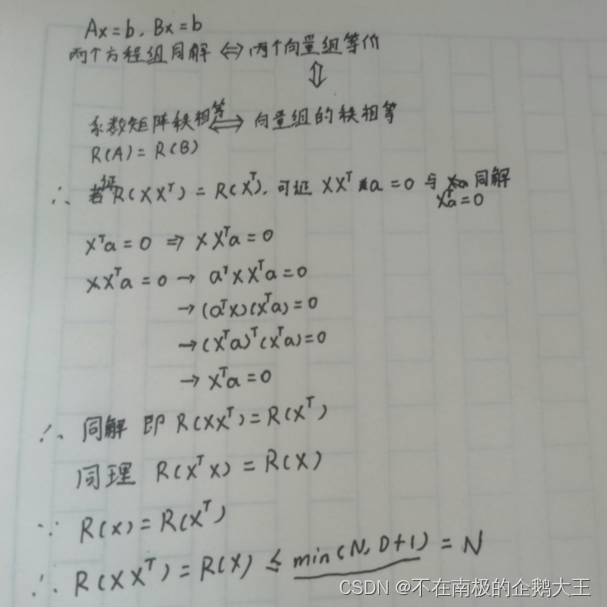 Ax=b, Bx=b
两个方程组同解 ⇔ 两个向量组等价
⇕
系数矩阵秩相等 ⇔ 向量组的秩相等
R(A)=R(B)
∴ 若证R(XXᵀ)=R(Xᵀ), 可证 XXᵀa=0 与 同解
Xᵀa=0
Xᵀa=0 ⇒ XXᵀa=0
XXᵀa=0 → aᵀXXᵀa=0
→(aᵀX)(Xᵀa)=0
→(Xᵀa)ᵀ(Xᵀa)=0
→ Xᵀa=0
∴ 同解 即 R(XXᵀ)=R(Xᵀ)
同理 R(XᵀX)=R(X)
∵ R(X)=R(Xᵀ)
∴ R(XXᵀ)=R(X) ≤ min(N,D+1) = N
CSDN @不在南极的企鹅大王